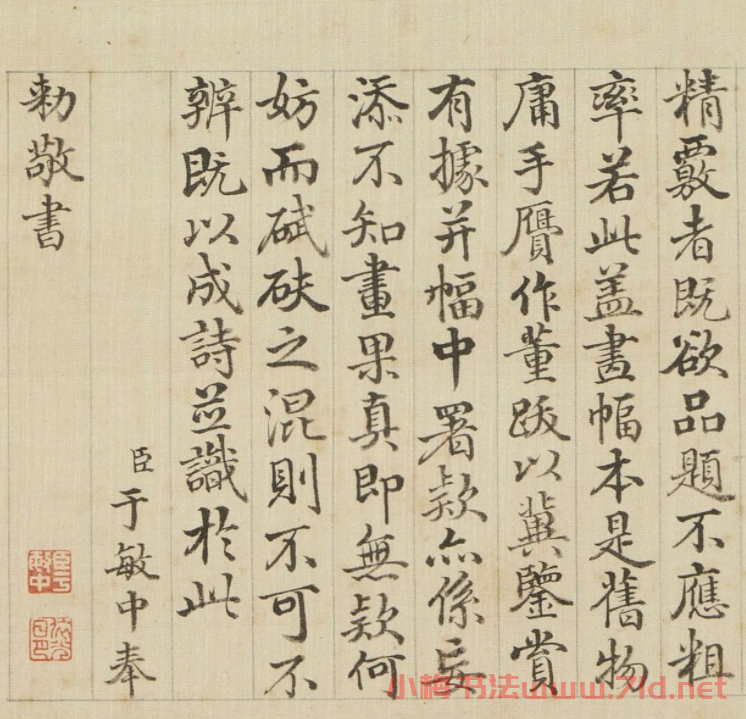 精覈者既欲品題不應粗
率若此盖畫幅本是舊物
庸手贋作董跋以冀鑒賞
有據并幅中署欵亦係妄
添不知畫果真即無欵何
妨而碔砆之混則不可不
辨既以成詩並識於此
臣于敏中奉
勅敬書
臣于敏中
小楷书法www.71d.net